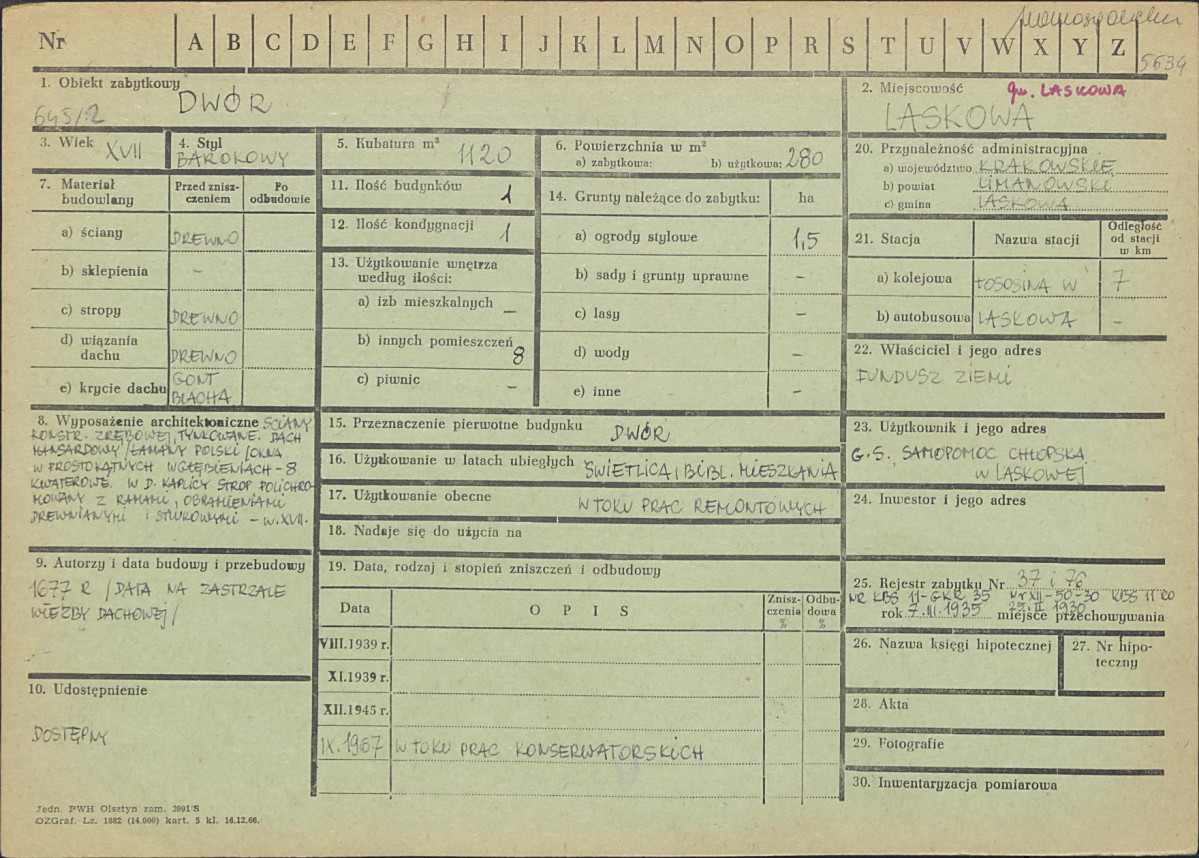 Nr A B C D E F G H I J K L M N O P R S T U V W X Y Z
5634
1. Obiekt zabytkowy
DWÓR
645/2
2. Miejscowość gm. LASKOWA
LASKOWA
3. Wiek XVII
4. Styl
BAROKOWY
5. Kubatura m³ 1120
6. Powierzchnia w m²
a) zabytkowa: b) użytkowa: 280
20. Przynależność administracyjna
a) województwo KRAKOWSKIE
b) powiat LIMANOWSKI
c) gmina LASKOWA
7. Materiał budowlany
Przed zniszczeniem
Po odbudowie
a) ściany DREWNO
b) sklepienia –
c) stropy DREWNO
d) wiązania dachu DREWNO
e) krycie dachu GONT
BLACHA
11. Ilość budynków 1
12. Ilość kondygnacji 1
13. Użytkowanie wnętrza
według ilości:
a) izb mieszkalnych –
b) innych pomieszczeń 8
c) piwnic –
14. Grunty należące do zabytku: ha
a) ogrody stylowe 1,5
b) sady i grunty uprawne –
c) lasy –
d) wody –
e) inne –
21. Stacja Nazwa stacji Odległość od stacji w km
a) kolejowa ŁOSOSINA W 7
b) autobusowa LASKOWA –
22. Właściciel i jego adres
FUNDUSZ ZIEMI
8. Wyposażenie architektoniczne ŚCIANY
KONSTR. ZRĘBOWEJ, TYNKOWANE. DACH
MANSARDOWY /ŁAMANY POLSKI/ OKNA
W PROSTOKĄTNYCH WGŁĘBIENIACH – 8
KWATEROWE. W D. KAPLICY STROP POLICHRO-
MOWANY Z RAMAMI, OBRAMIENIAMI
DREWNIANYMI I STIUKOWYMI – W. XVII.
15. Przeznaczenie pierwotne budynku DWÓR
16. Użytkowanie w latach ubiegłych ŚWIETLICA, BIBL. MIESZKANIA
17. Użytkowanie obecne W TOKU PRAC REMONTOWYCH
18. Nadaje się do użycia na
23. Użytkownik i jego adres
G.S. SAMOPOMOC CHŁOPSKA
W LASKOWEJ
24. Inwestor i jego adres
9. Autorzy i data budowy i przebudowy
1677 R /DATA NA ZASTRZALE
WIĘŹBY DACHOWEJ/
19. Data, rodzaj i stopień zniszczeń i odbudowy
Data OPIS Zniszczenia % Odbudowa %
VIII.1939 r.
XI.1939 r.
XII.1945 r.
IX.1967 W TOKU PRAC KONSERWATORSKICH
25. Rejestr zabytku Nr 37 i 76
NR KBS 11-GKR 35 Nr XII-50-30 KBS 11 RO
rok 7.III.1935 29.II 1930 miejsce przechowywania
26. Nazwa księgi hipotecznej
27. Nr hipoteczny
28. Akta
29. Fotografie
30. Inwentaryzacja pomiarowa
10. Udostępnienie
DOSTĘPNY
Jedn. PWH Olsztyn zam. 3991/S
OZGraf. Lz. 1882 (14.000) kart. 5 kl. 16.12.66.